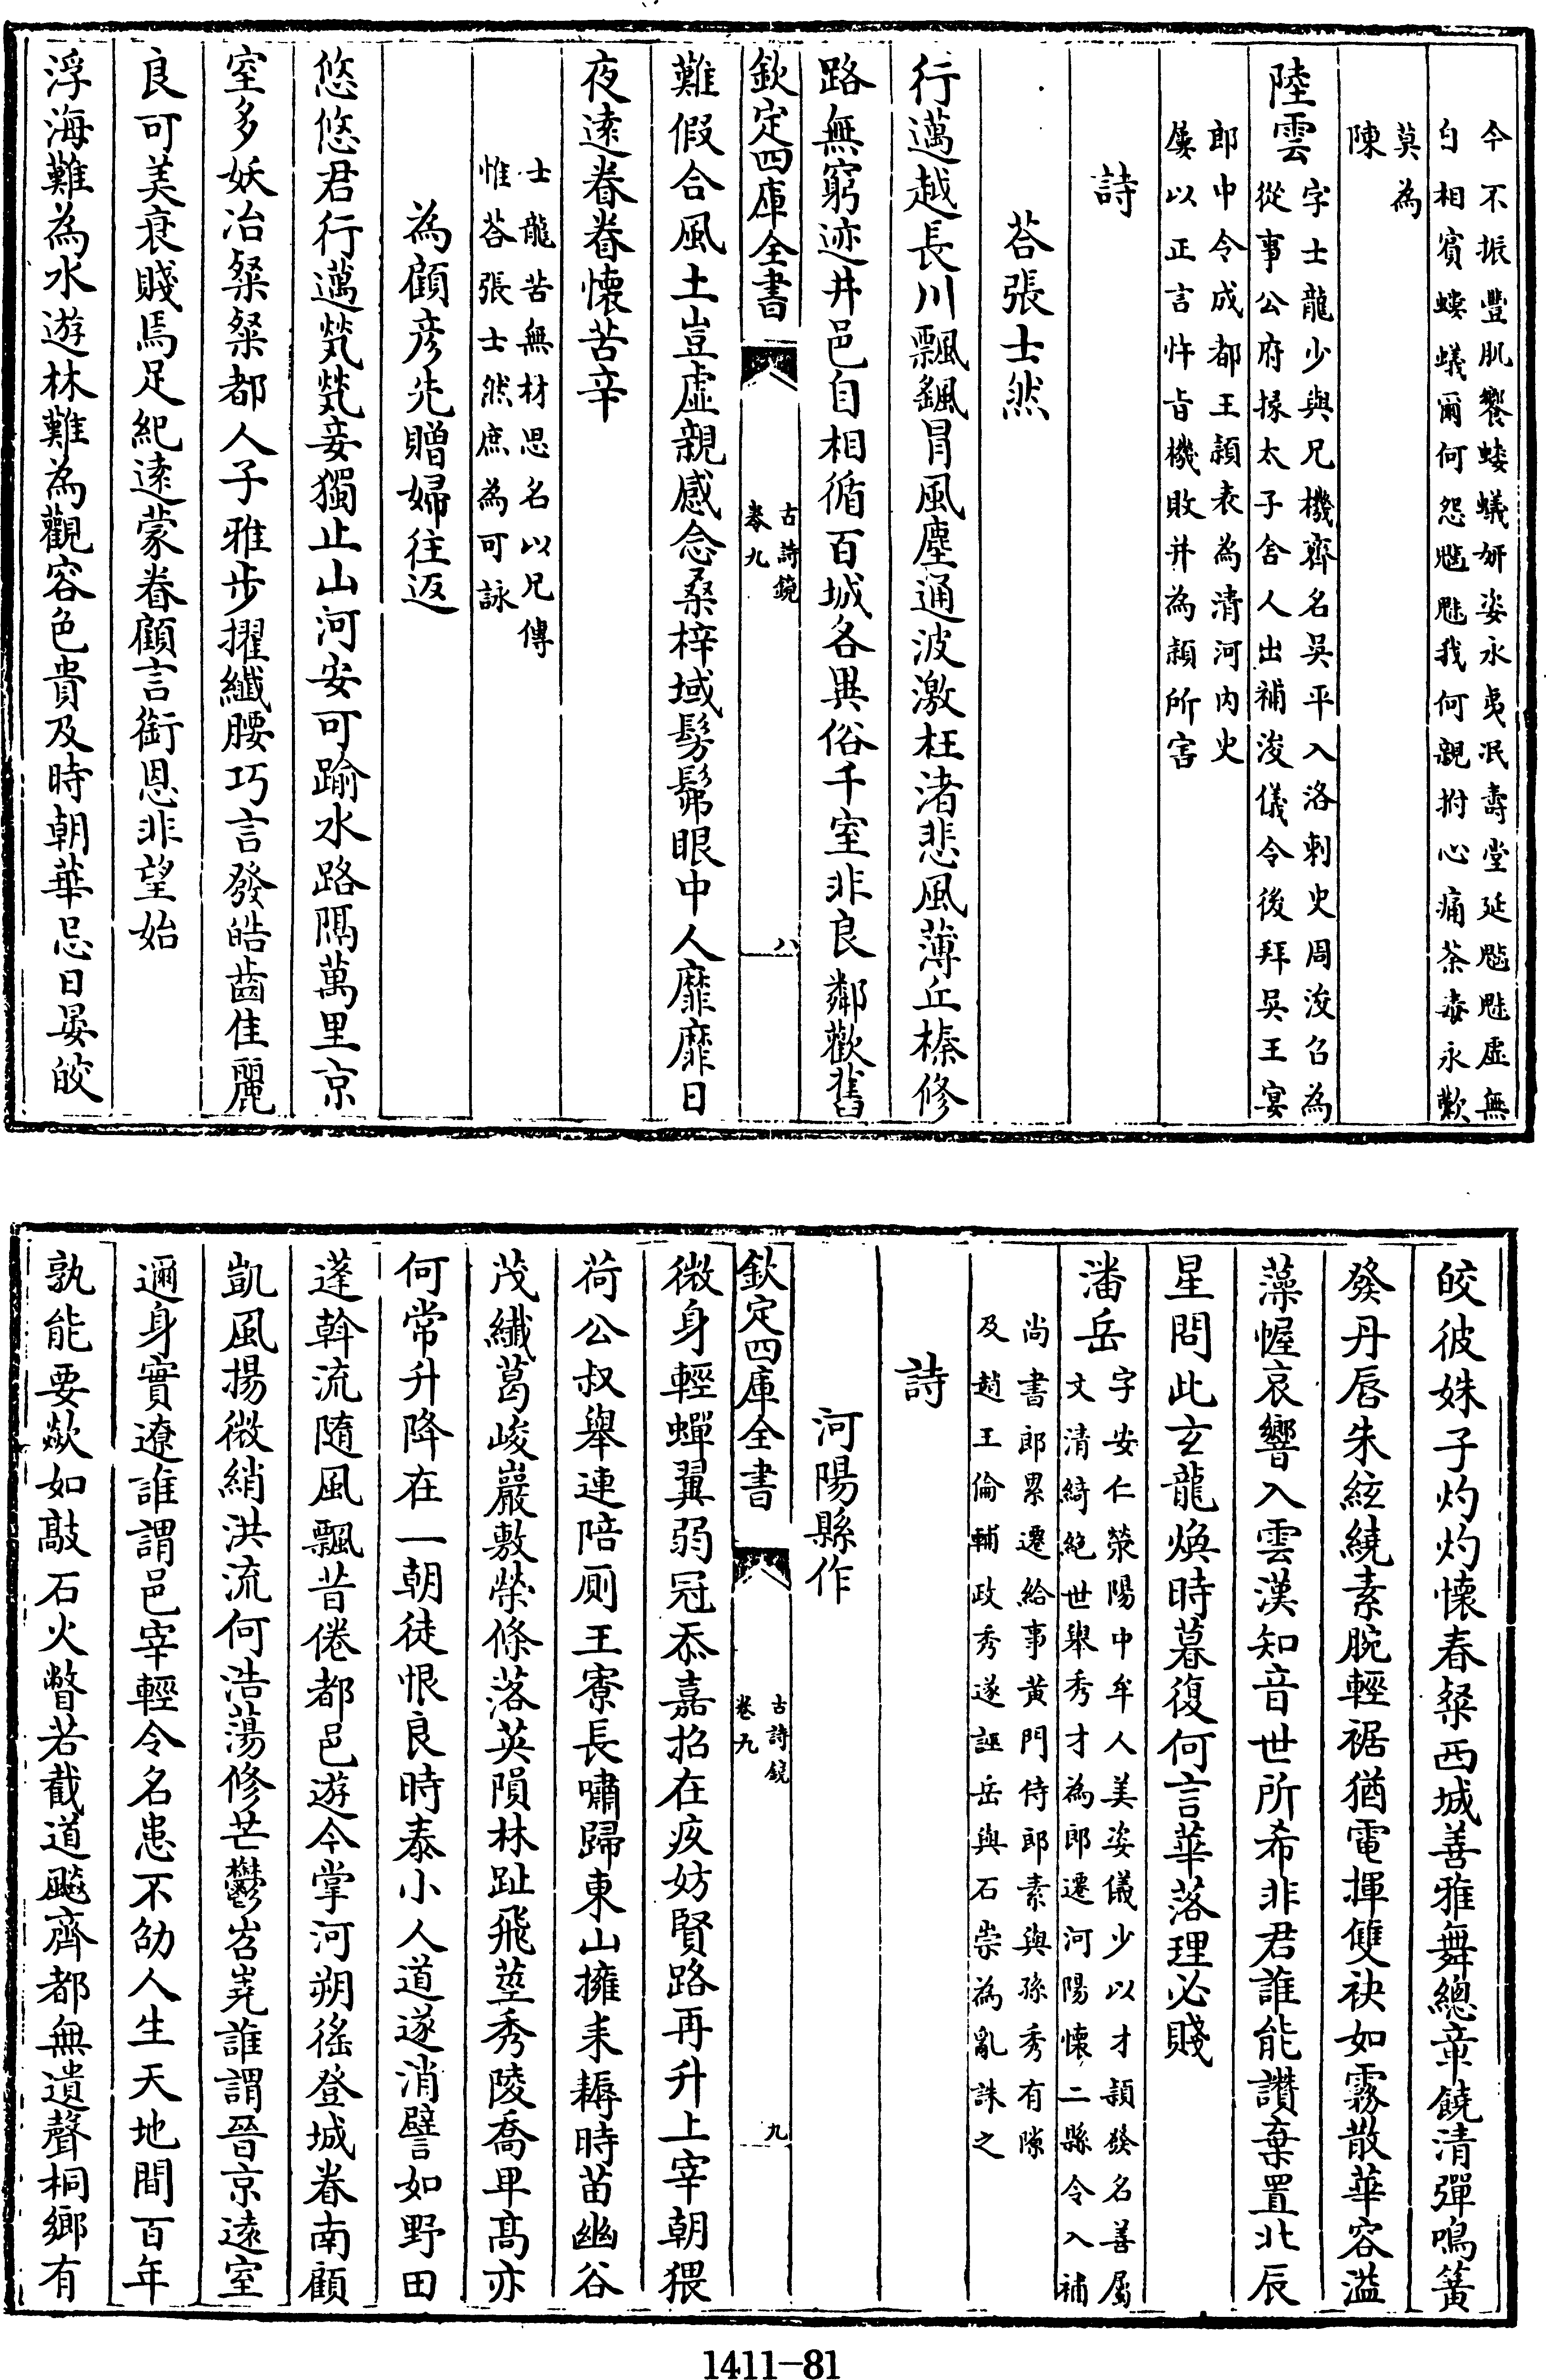 今不振豐肌饗螻蟻妍姿永夷泯壽堂延魑魅虛無
自相賓螻蟻爾何怨魑魅我何親拊心痛荼毒永歎
莫為
陳
陸雲
字士龍少與兄機齊名吳平入洛刺史周浚召為
從事公府掾太子舍人出補浚儀令後拜吳王宴
郎中令成都王穎表為清河內史
屢以正言忤旨機敗并為穎所害
詩
荅張士然
行邁越長川飄颻冒風塵通波激枉渚悲風薄丘榛修
路無窮迹井邑自相循百城各異俗千室非良鄰歡舊
欽定四庫全書
古詩鏡
卷九
八
難假合風土豈虛親感念桑梓域髣髴眼中人靡靡日
夜遠眷眷懷苦辛
士龍苦無材思名以兄傳
惟荅張士然庶為可詠
為顧彥先贈婦往返
悠悠君行邁煢煢妾獨止山河安可踰水路隔萬里京
室多妖冶粲粲都人子雅步擢纖腰巧言發皓齒佳麗
良可美衰賤焉足紀遠蒙眷顧言銜恩非望始
浮海難為水遊林難為觀容色貴及時朝華忌日晏皎
皎彼姝子灼灼懷春粲西城善雅舞總章饒清彈鳴簧
發丹唇朱絃繞素腕輕裾猶電揮雙袂如霧散華容溢
藻幄哀響入雲漢知音世所希非君誰能讚棄置北辰
星問此玄龍煥時暮復何言華落理必賤
潘岳
字安仁滎陽中牟人美姿儀少以才穎發名善屬
文清綺絕世舉秀才為郎遷河陽懷二縣令入補
尚書郎累遷給事黃門侍郎素與孫秀有隙
及趙王倫輔政秀遂誣岳與石崇為亂誅之
詩
河陽縣作
欽定四庫全書
古詩鏡
卷九
九
微身輕蟬翼弱冠忝嘉招在疚妨賢路再升上宰朝猥
荷公叔舉連陪厠王寮長嘯歸東山擁耒耨時苗幽谷
茂纖葛峻巖敷榮條落英隕林趾飛莖秀陵喬卑高亦
何常升降在一朝徒恨良時泰小人道遂消譬如野田
蓬斡流隨風飄昔倦都邑遊今掌河朔徭登城眷南顧
凱風揚微綃洪流何浩蕩修芒鬱岧嶤誰謂晉京遠室
邇身實遼誰謂邑宰輕令名患不劭人生天地間百年
孰能要歘如敲石火瞥若截道飈齊都無遺聲桐鄉有
1411-81